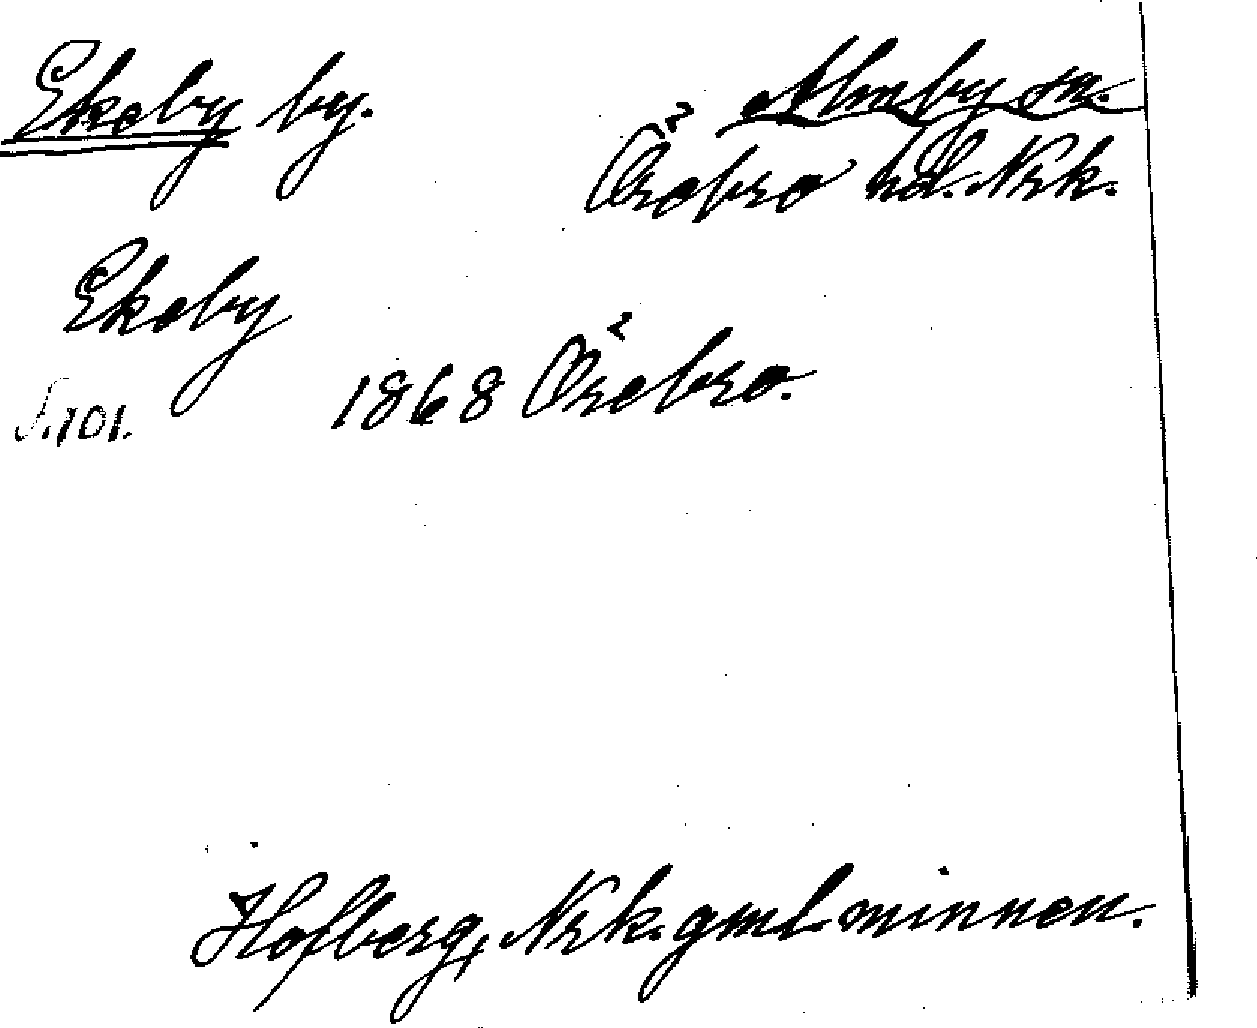 Ekeby by. Almby sn.
Örebro hd. Nrk.
Ekeby
S. 101. 1868 Örebro.
Hofberg, Nrk. gml. minnen.